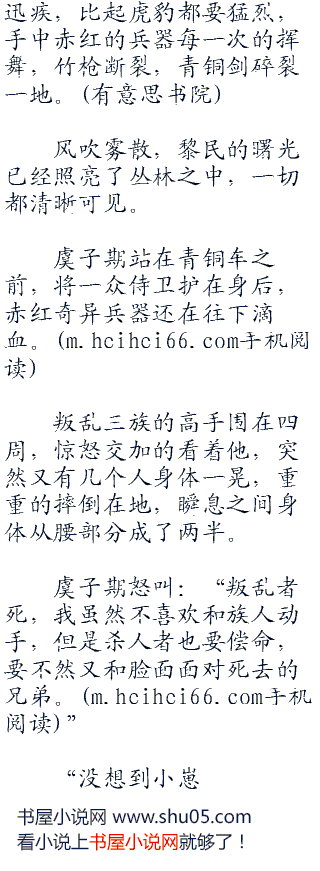 迅疾，比起虎豹都要猛烈，
手中赤红的兵器每一次的挥
舞，竹枪断裂，青铜剑碎裂
一地。(有意思书院)
风吹雾散，黎民的曙光
已经照亮了丛林之中，一切
都清晰可见。
虞子期站在青铜车之
前，将一众侍卫护在身后，
赤红奇异兵器还在往下滴
血。(m.hcihci66.com手机阅
读)
叛乱三族的高手围在四
周，惊怒交加的看着他，突
然又有几个人身体一晃，重
重的摔倒在地，瞬息之间身
体从腰部分成了两半。
虞子期怒叫：“叛乱者
死，我虽然不喜欢和族人动
手，但是杀人者也要偿命，
要不然又和脸面面对死去的
兄弟。(m.hcihci66.com手机
阅读)”
“没想到小崽
书屋小说网 www.shu05.com
看小说上书屋小说网就够了！